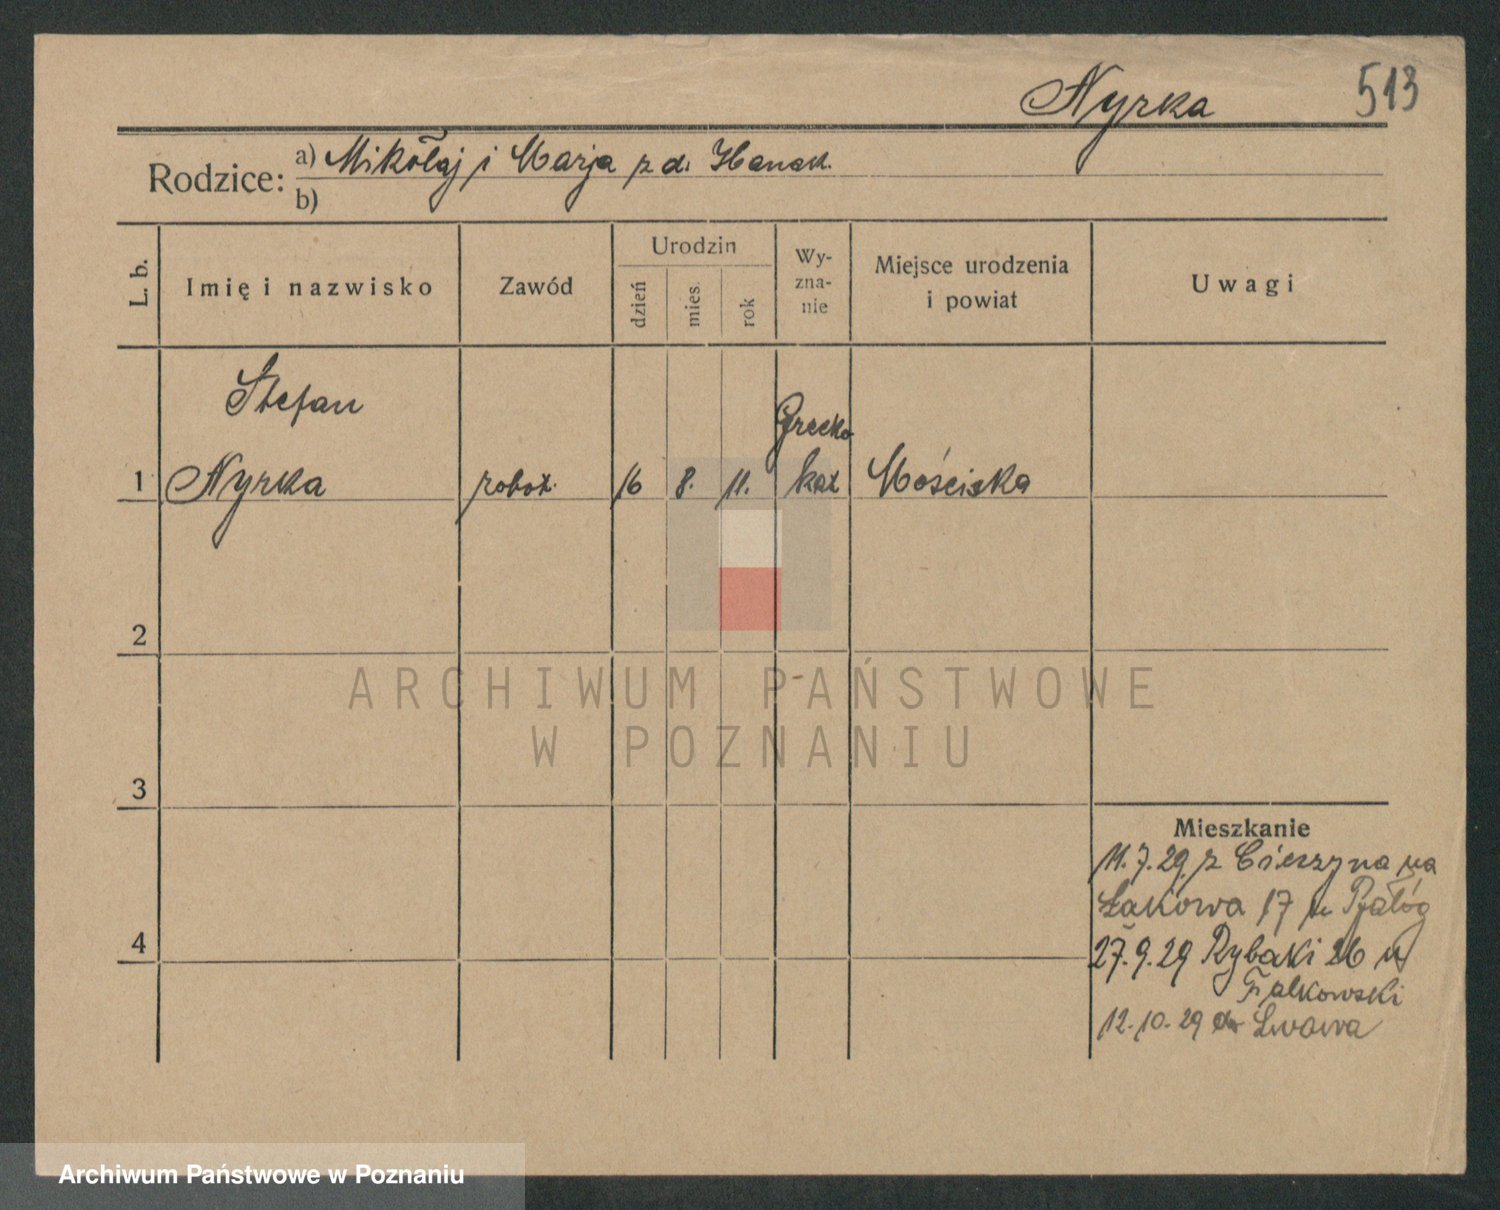 Nyrka 513
Rodzice: a) Mikołaj i Marja z d. Hanak.
b)
L. b. Imię i nazwisko Zawód Urodzin dzień mies. rok Wy-zna-nie Miejsce urodzenia i powiat Uwagi
Stefan
1 Nyrka robot. 16 8. 11. Grecko kat Mościska
2
3
4
ARCHIWUM PAŃSTWOWE
W POZNANIU
Mieszkanie
11.7.29 z Cieszyna na
Łąkowa 17 u
27.9.29 Rybaki 26 u
Falkowski
12.10.29 do Lwowa
Archiwum Państwowe w Poznaniu